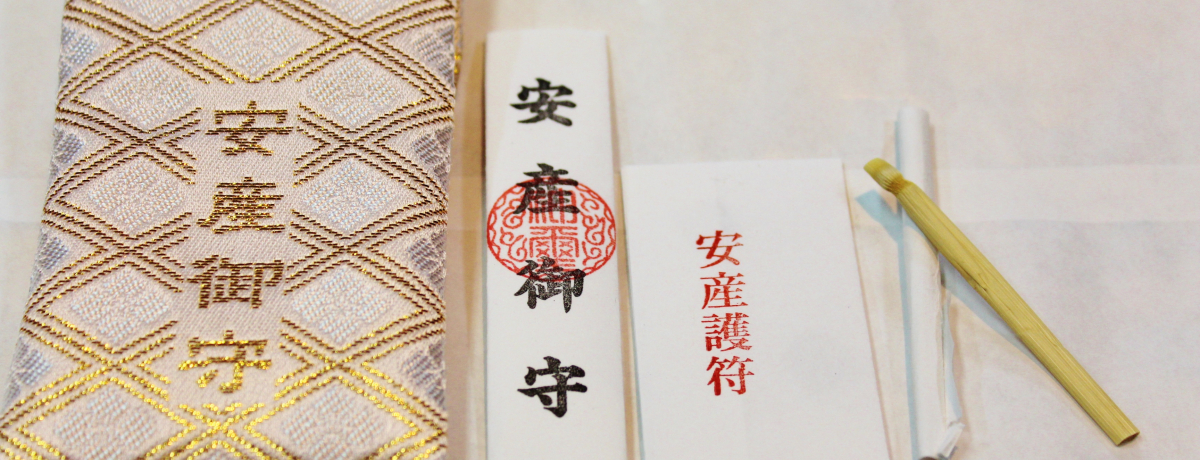 安産御守
安産御守
安産護符